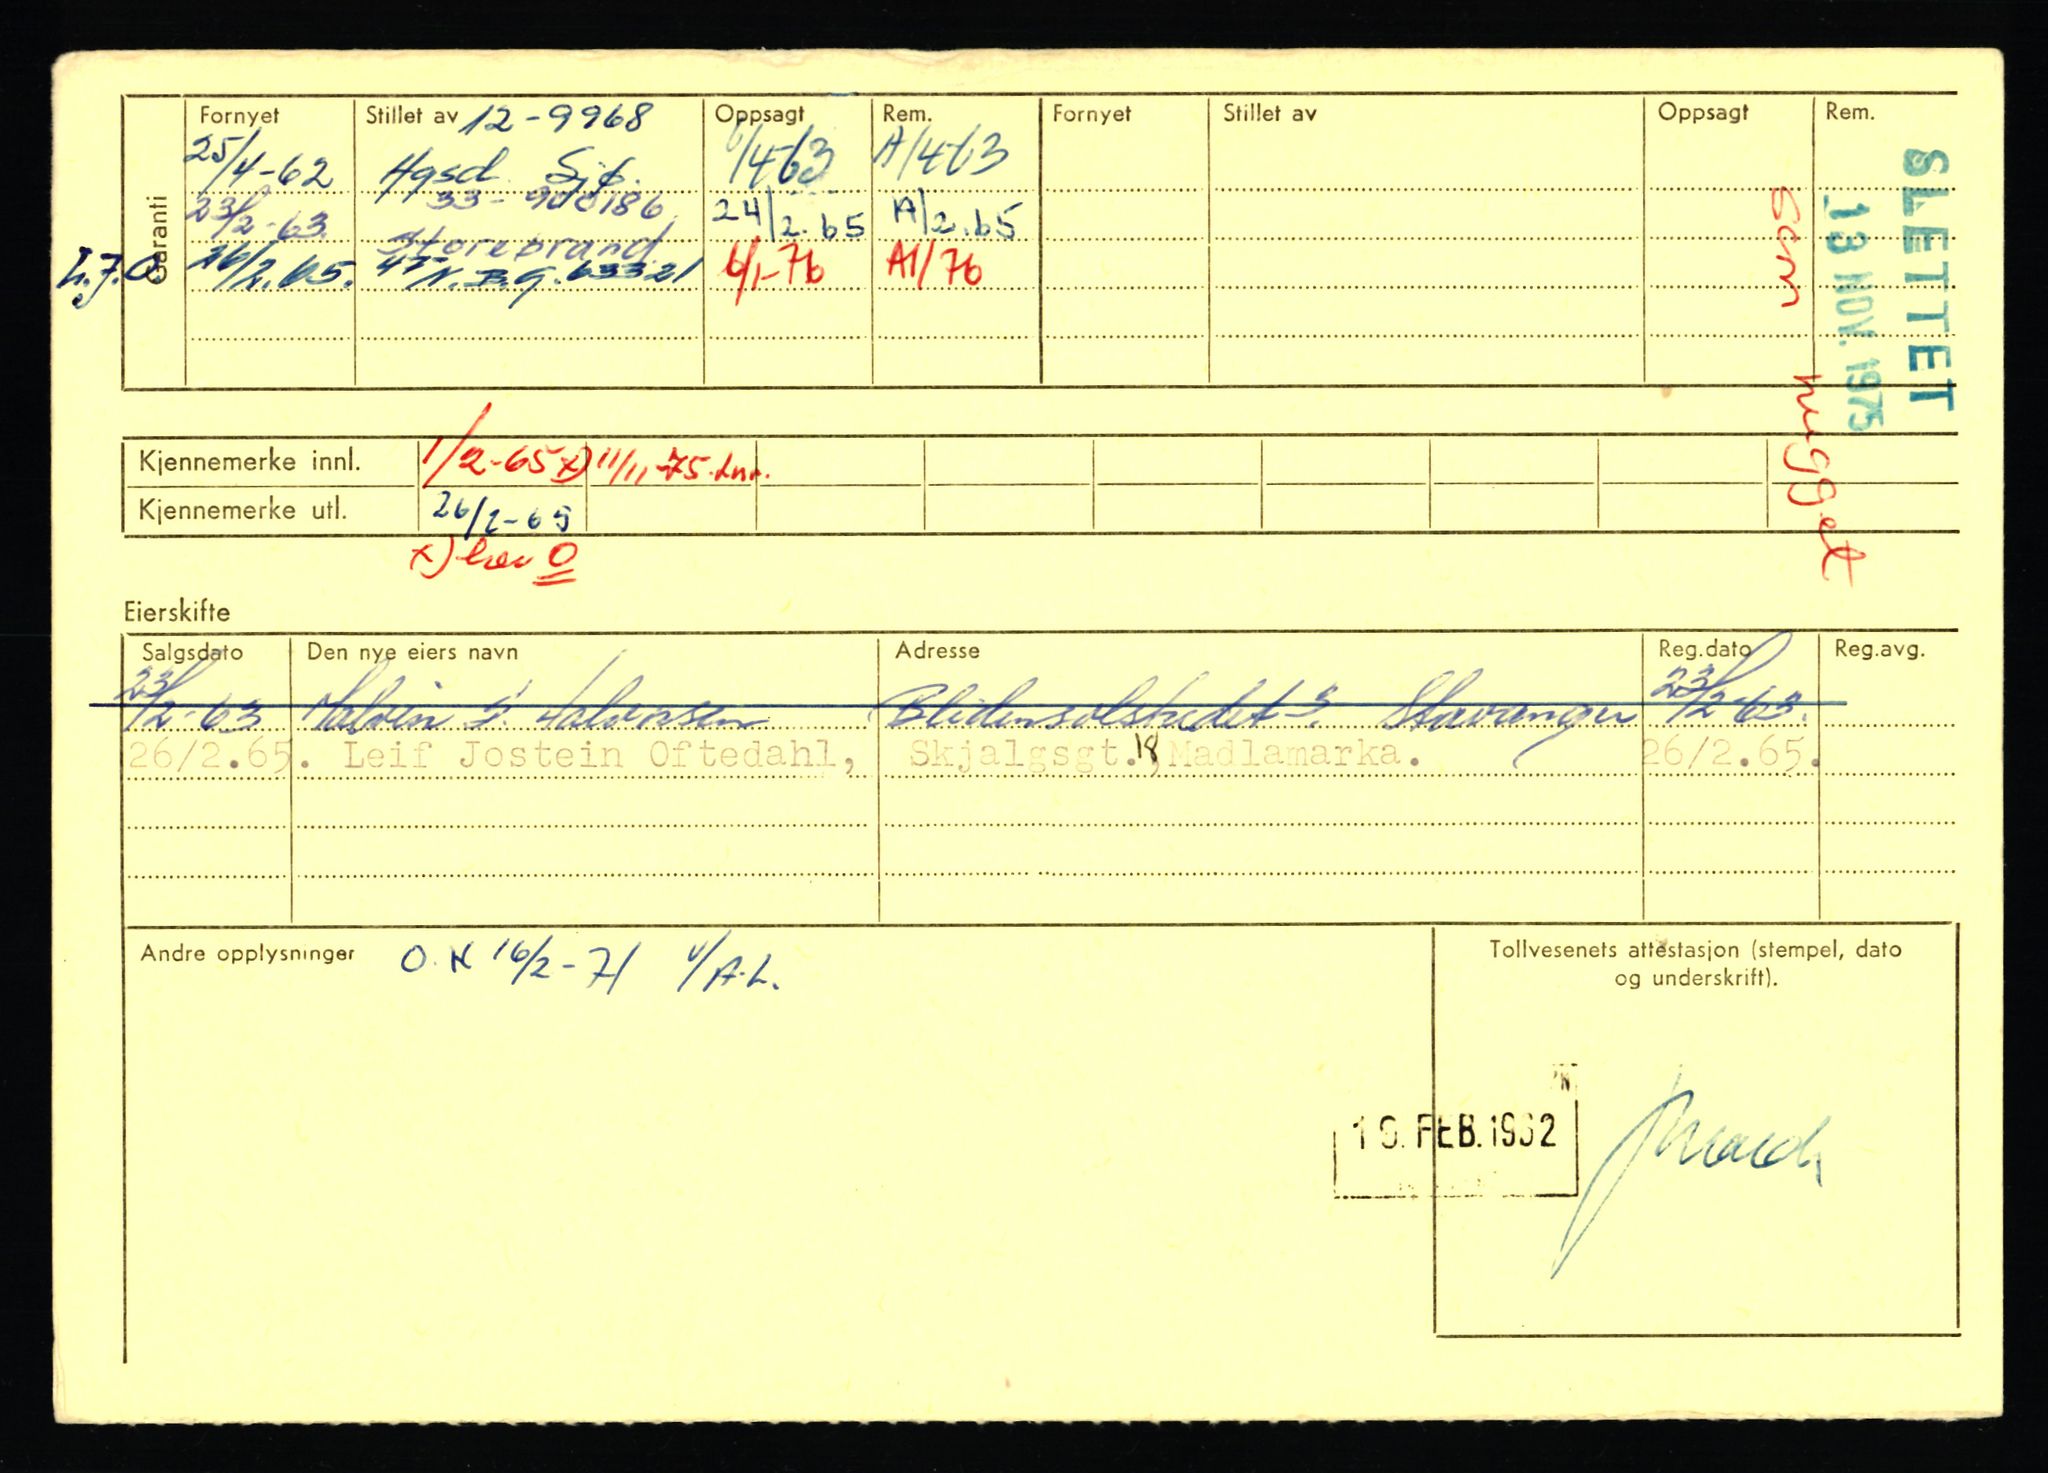 Garanti
Fornyet Stillet av 12-9968 Oppsagt Rem. Fornyet Stillet av Oppsagt Rem.
25/4-62 Hgsd. Sjø. 1/4-63 A/4-63
33-900186
23/2-63 Storebrand 24/2.65 A/2.65
L.J.O. 26/2.65. N.B.G. 63321 6/1-76 A1/76
SLETTET
13 NOV. 1975
Som hugget
Kjennemerke innl. 1/2-65 x) 11/11-75.
Kjennemerke utl. 26/2-65
x) lev O
Eierskifte
Salgsdato Den nye eiers navn Adresse Reg.dato Reg.avg.
23/2-63 Halvorsen Stavanger 23/2-63.
26/2.65. Leif Jostein Oftedahl, Skjalgsgt.18, Madlamarka. 26/2.65.
Andre opplysninger O.N 16/2-71 A.L.
Tollvesenets attestasjon (stempel, dato
og underskrift).
FEB. 1962